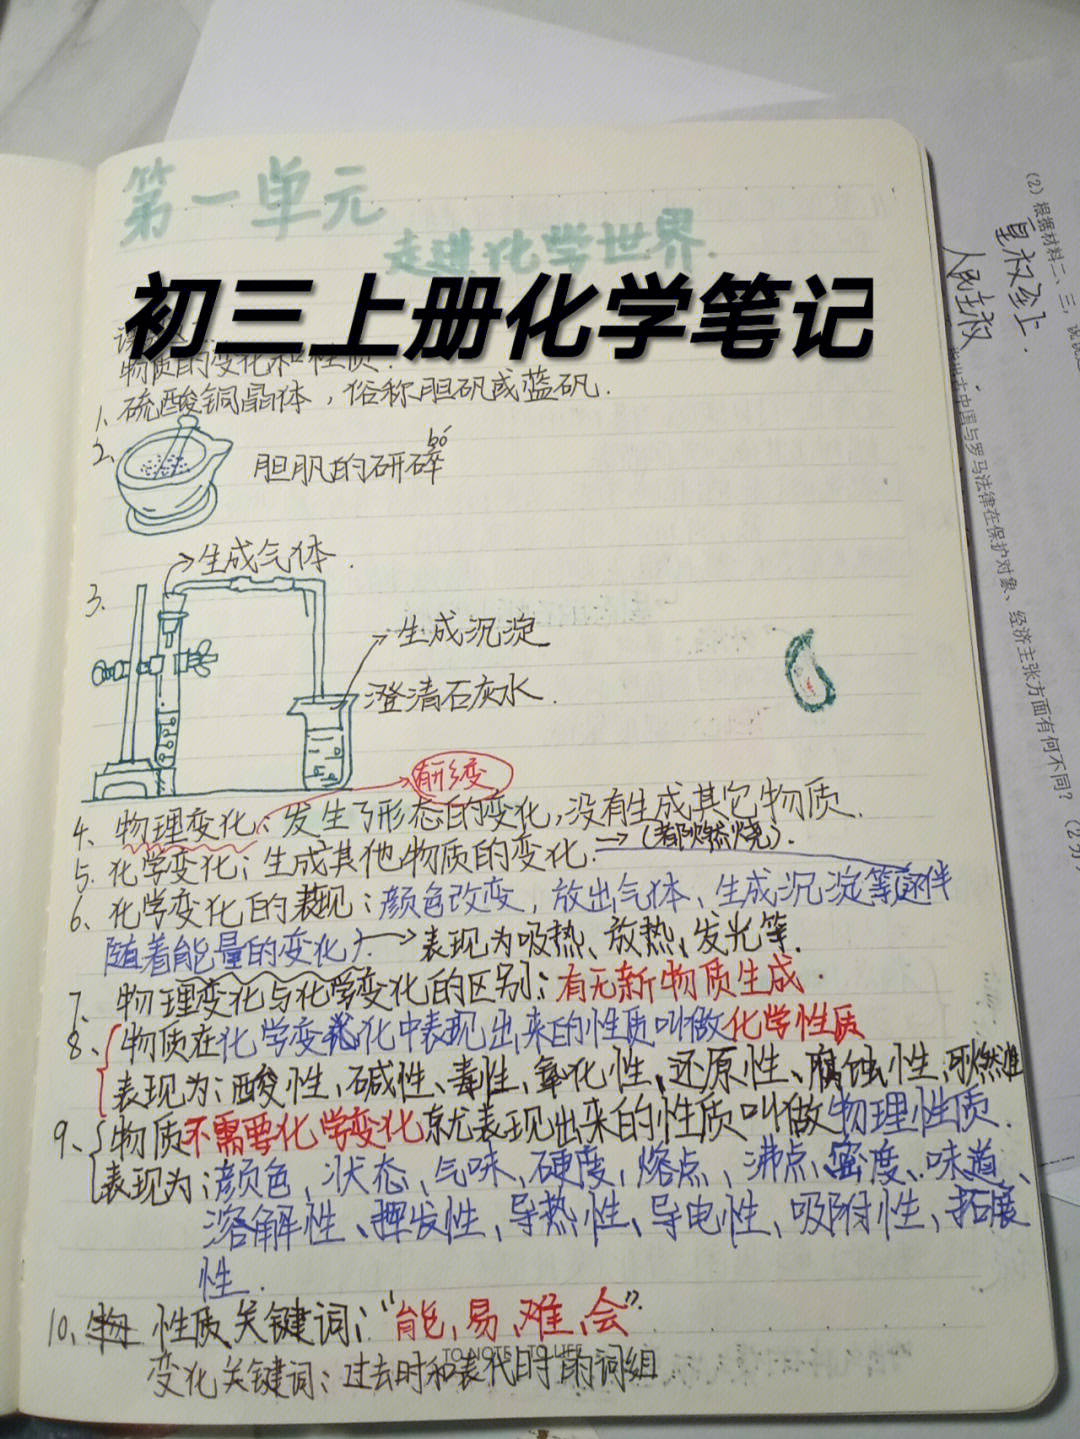 第一单元
走进化学世界
初三上册化学笔记
物质的变化和性质.
1、硫酸铜晶体，俗称胆矾或蓝矾.
2、
bó
胆矾的研碎
→生成气体.
3、
生成沉淀
澄清石灰水.
有形变
4、物理变化：发生了形态的变化,没有生成其它物质.
5、化学变化：生成其他物质的变化.→(都燃烧).
6、化学变化的表现：颜色改变，放出气体、生成沉淀等(伴
随着能量的变化)→表现为吸热、放热、发光等.
7、物理变化与化学变化的区别：有无新物质生成.
8、物质在化学变化中表现出来的性质叫做化学性质
表现为：酸性、碱性、毒性、氧化性、还原性、腐蚀性、可燃性
9、物质不需要化学变化就表现出来的性质叫做物理性质.
表现为：颜色，状态，气味，硬度，熔点，沸点、密度、味道、
溶解性、挥发性，导热性、导电性，吸附性、拓展
性.
10、物 性质关键词："能，易，难，会".
TO NOTE TO LIFE
变化关键词：过去时和表代时的词组
(2) 根据材料二、三，说说
皇权至上.
人民主权
中国与罗马法律在保护对象、经济主张方面有何不同？(2分)